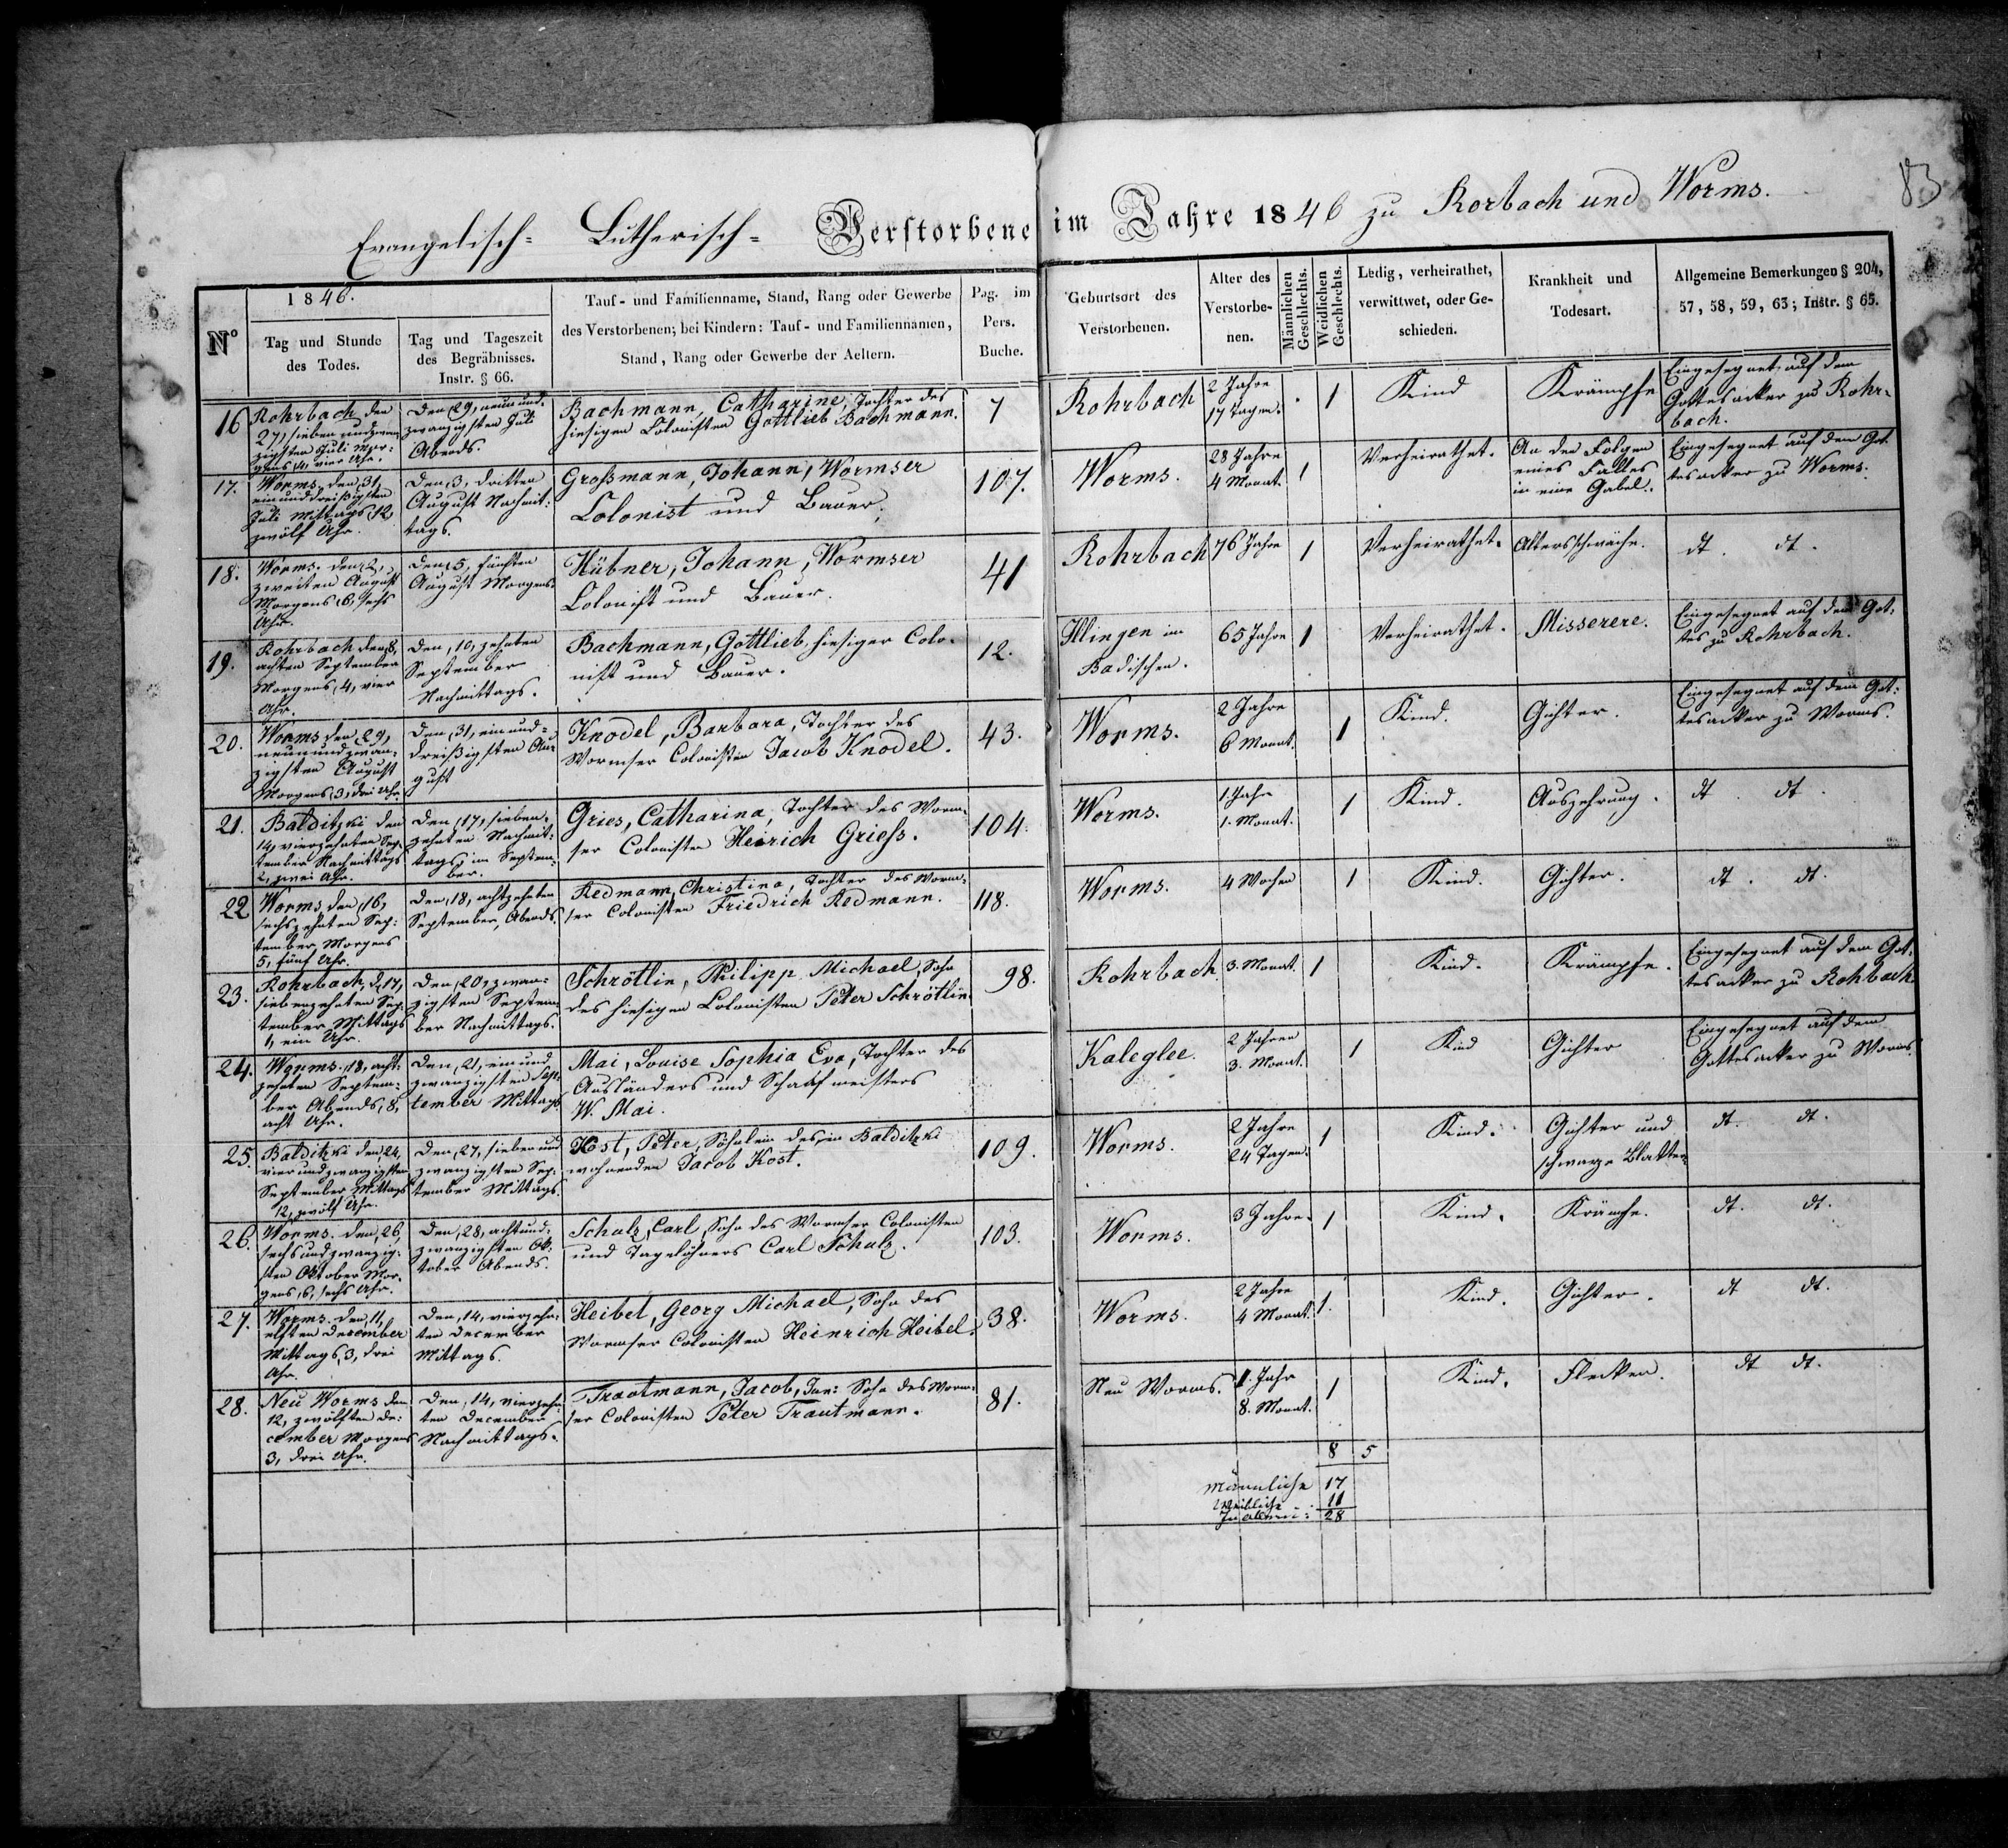 83
Evangelisch- Lutherisch- Verstorbene im Jahre 1846 zu Rorbach und Worms.
No
1846.
Tag und Stunde
des Todes.
Tag und Tageszeit
des Begräbnisses.
Instr. § 66.
Tauf- und Familienname, Stand, Rang oder Gewerbe
des Verstorbenen; bei Kindern: Tauf- und Familiennamen,
Stand, Rang oder Gewerbe der Aeltern.
Pag. im
Pers.
Buche.
Geburtsort des
Verstorbenen.
Alter des
Verstorbe-
nen.
Männlichen
Geschlechts.
Weiblichen
Geschlechts.
Ledig, verheirathet,
verwittwet, oder Ge-
schieden.
Krankheit und
Todesart.
Allgemeine Bemerkungen § 204,
57, 58, 59, 63; Instr. § 65.
16
Rohrbach den
27, sieben und zwan
zigsten Juli Mor-
gens 4, vier Uhr.
Den 29, neun und-
zwanzigsten Juli
Abends.
Bachmann, Catharine, Tochter des
hiesigen Colonisten Gottlieb Bachmann.
7
Rohrbach
2 Jahre
17 Tagen.
1
Kind
Krämpfe
Eingesegnet auf dem
Gottesacker zu Rohr-
bach.
17.
Worms, den 31,
ein und dreißigsten
Juli Mittags 12,
zwölf Uhr.
Den 3, dritten
August Nachmit-
tags.
Großmann, Johann, Wormser
Colonist und Bauer.
107.
Worms.
28 Jahre
4 Monat.
1
Verheirathet.
An den Folgen
eines Falles
in eine Gabel.
Eingesegnet auf dem Got-
tesacker zu Worms.
18.
Worms. den 2,
zweiten August
Morgens 6, sechs
Uhr.
Den 5, fünften
August Morgens.
Hübner, Johann, Wormser
Colonist und Bauer.
41
Rohrbach
76 Jahre
1
Verheirathet.
Altersschwäche.
dt. dt.
19.
Rohrbach den 8,
achten September
Morgens 4, vier
Uhr.
Den, 10, zehnten
September
Nachmittags.
Bachmann, Gottlieb, hiesiger Colo-
nist und Bauer.
12.
Illingen im
Badischen.
65 Jahre
1
Verheirathet.
Misserere.
Eingesegnet auf dem Got-
tes zu Rohrbach.
20.
Worms den 29,
neun und zwan-
zigsten August
Morgens 3, drei Uhr.
Den, 31, ein und-
dreißigsten Au-
gust
Knodel, Barbara, Tochter des
Wormser Colonisten Jacob Knodel.
43.
Worms.
2 Jahre
6 Monat.
1
Kind.
Gichter.
Eingesegnet auf dem Got-
tesacker zu Worms.
21.
Balditzki den
14, vierzehnten Sep-
tember Nachmittags
2, zwei Uhr.
Den, 17, sieben-
zehnten Nachmit-
tags im Septem-
ber.
Gries, Catharina, Tochter des Worm-
ser Colonisten Heirich Griess.
104.
Worms.
1 Jahr
1. Monat.
1
Kind.
Auszehrung.
dt. dt.
22
Worms den, 16,
sechszehnten Sep-
tember, Morgens
5, fünf Uhr.
Den, 18, achtzehnten
September, Abends.
Redmann, Christina, Tochter des Worm-
ser Colonisten Friedrich Redmann.
118.
Worms.
4 Wochen
1
Kind.
Gichter.
dt. dt.
23.
Rohrbach, d. 17,
siebenzehnten Sep-
tember, Mittags
1, ein Uhr.
Den, 20, zwan-
zigsten Septem-
ber Nachmittags.
Schrötlin, Philipp Michael, Sohn
des hiesigen Colonisten Peter Schrötlin.
98.
Rohrbach
3. Monat.
1
Kind.
Krämpfe.
Eingesegnet auf dem Got-
tesacker zu Rohbach.
24.
Worms. 18, acht-
zehnten Septem-
ber Abends, 8,
acht Uhr.
Den, 21, ein und
zwanzigsten Sep-
tember Mittags
Mai, Louise Sophia Eva, Tochter des
Ausländers und Schaafmeisters
W. Mai.
Kaleglee.
2 Jahren
3. Monat.
1
Kind
Gichter
Eingesegnet auf dem
Gottesacker zu Worms.
25.
Balditzki den, 24,
vier und zwanzigsten
September Mittags
12, zwölf Uhr.
Den, 27, sieben und
zwanzigsten Sep-
tember Mittags.
Kost, Peter, Söhnlein des, in Balditzki
wohnenden Jacob Kost.
109.
Worms.
2 Jahre
24 Tagen.
1
Kind.
Gichter und
schwarze Blattern
dt. dt.
26.
Worms. den, 26,
sechs und zwanzig-
sten Oktober Mor-
gens, 6, sechs Uhr.
Den, 28, acht und-
zwanzigsten Ok-
tober Abends.
Schulz, Carl, Sohn des Wormser Colonisten
und Tagelöhners Carl Schulz.
103.
Worms.
3 Jahre.
1
Kind.
Krämpfe.
dt. dt.
27.
Worms. den, 11,
elften December
Mittags, 3, drei
Uhr.
Den, 14, vierzehn-
ten December
Mittags.
Heibel, Georg Michael, Sohn des
Wormser Colonisten Heinrich Heibel.
38.
Worms.
2 Jahre
4 Monat.
1.
Kind.
Gichter.
dt dt.
28.
Neu Worms den
12, zwölften De-
cember Morgens
3, drei Uhr.
Den, 14, vierzehn-
ten December
Nachmittags.
Trautmann, Jacob, Jun: Sohn des Worm-
ser Colonisten Peter Trautmann.
81.
Neu Worms.
1 Jahr
8. Monat.
1
Kind.
Flecken.
dt dt.
8 5
Männliche 17
Weibliche 11
In allem: 28